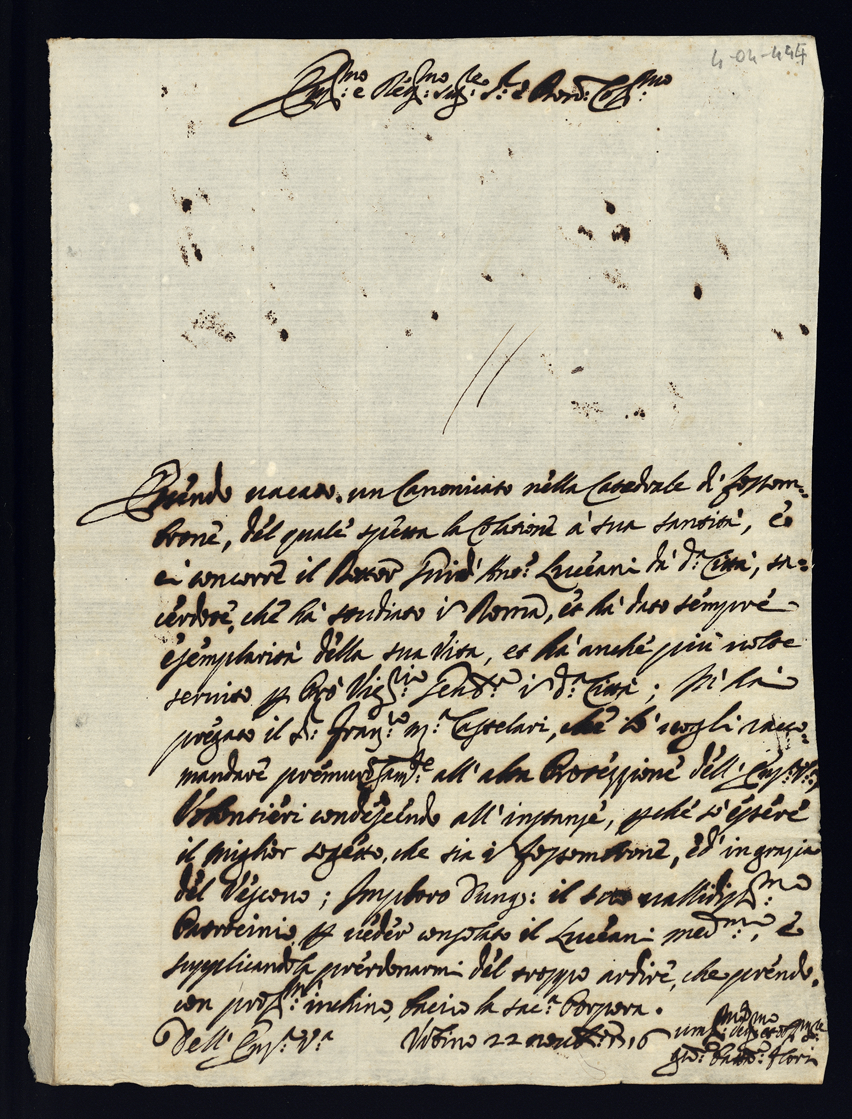 4-04-444
Em.mo e Rev.mo Sig.re S.r e Pron: Col.mo
Essendo uacato un Canonicato nella Catedrale di fossom=
brone, del quale spetta la Colatione à sua santità, e
ci concorre il Dottor Guid' Ant.o Luceani da d.a Città, sa=
cerdote, che hà studiato in Roma, et hà dato sempre
esemplarità della sua Vita, et hà anche più uolte
seruito p Pro Vic.rio Gen.le in d.a Città; Mi hà
pregato il S.r Fran.co M.a Castelari, che lo uogli racco=
mandare premuros.am.te all'alta Protezzione dell'Em.za V.a
Volontieri condescendo all'instanze, pche sò essere
il miglior sogetto, che sia in fossombrone, ed in grazia
del Vescouo; Imploro dunq: il suo ualidiss.mo
Patrocinio p ueder consolato il Luceani med.mo, e
supplicandola perdonarmi del troppo ardire, che prendo,
con prof.mo inchino, bacio la sac.a Porpora.
Dell'Em.za V.a Urbino 22 nouembre 1716